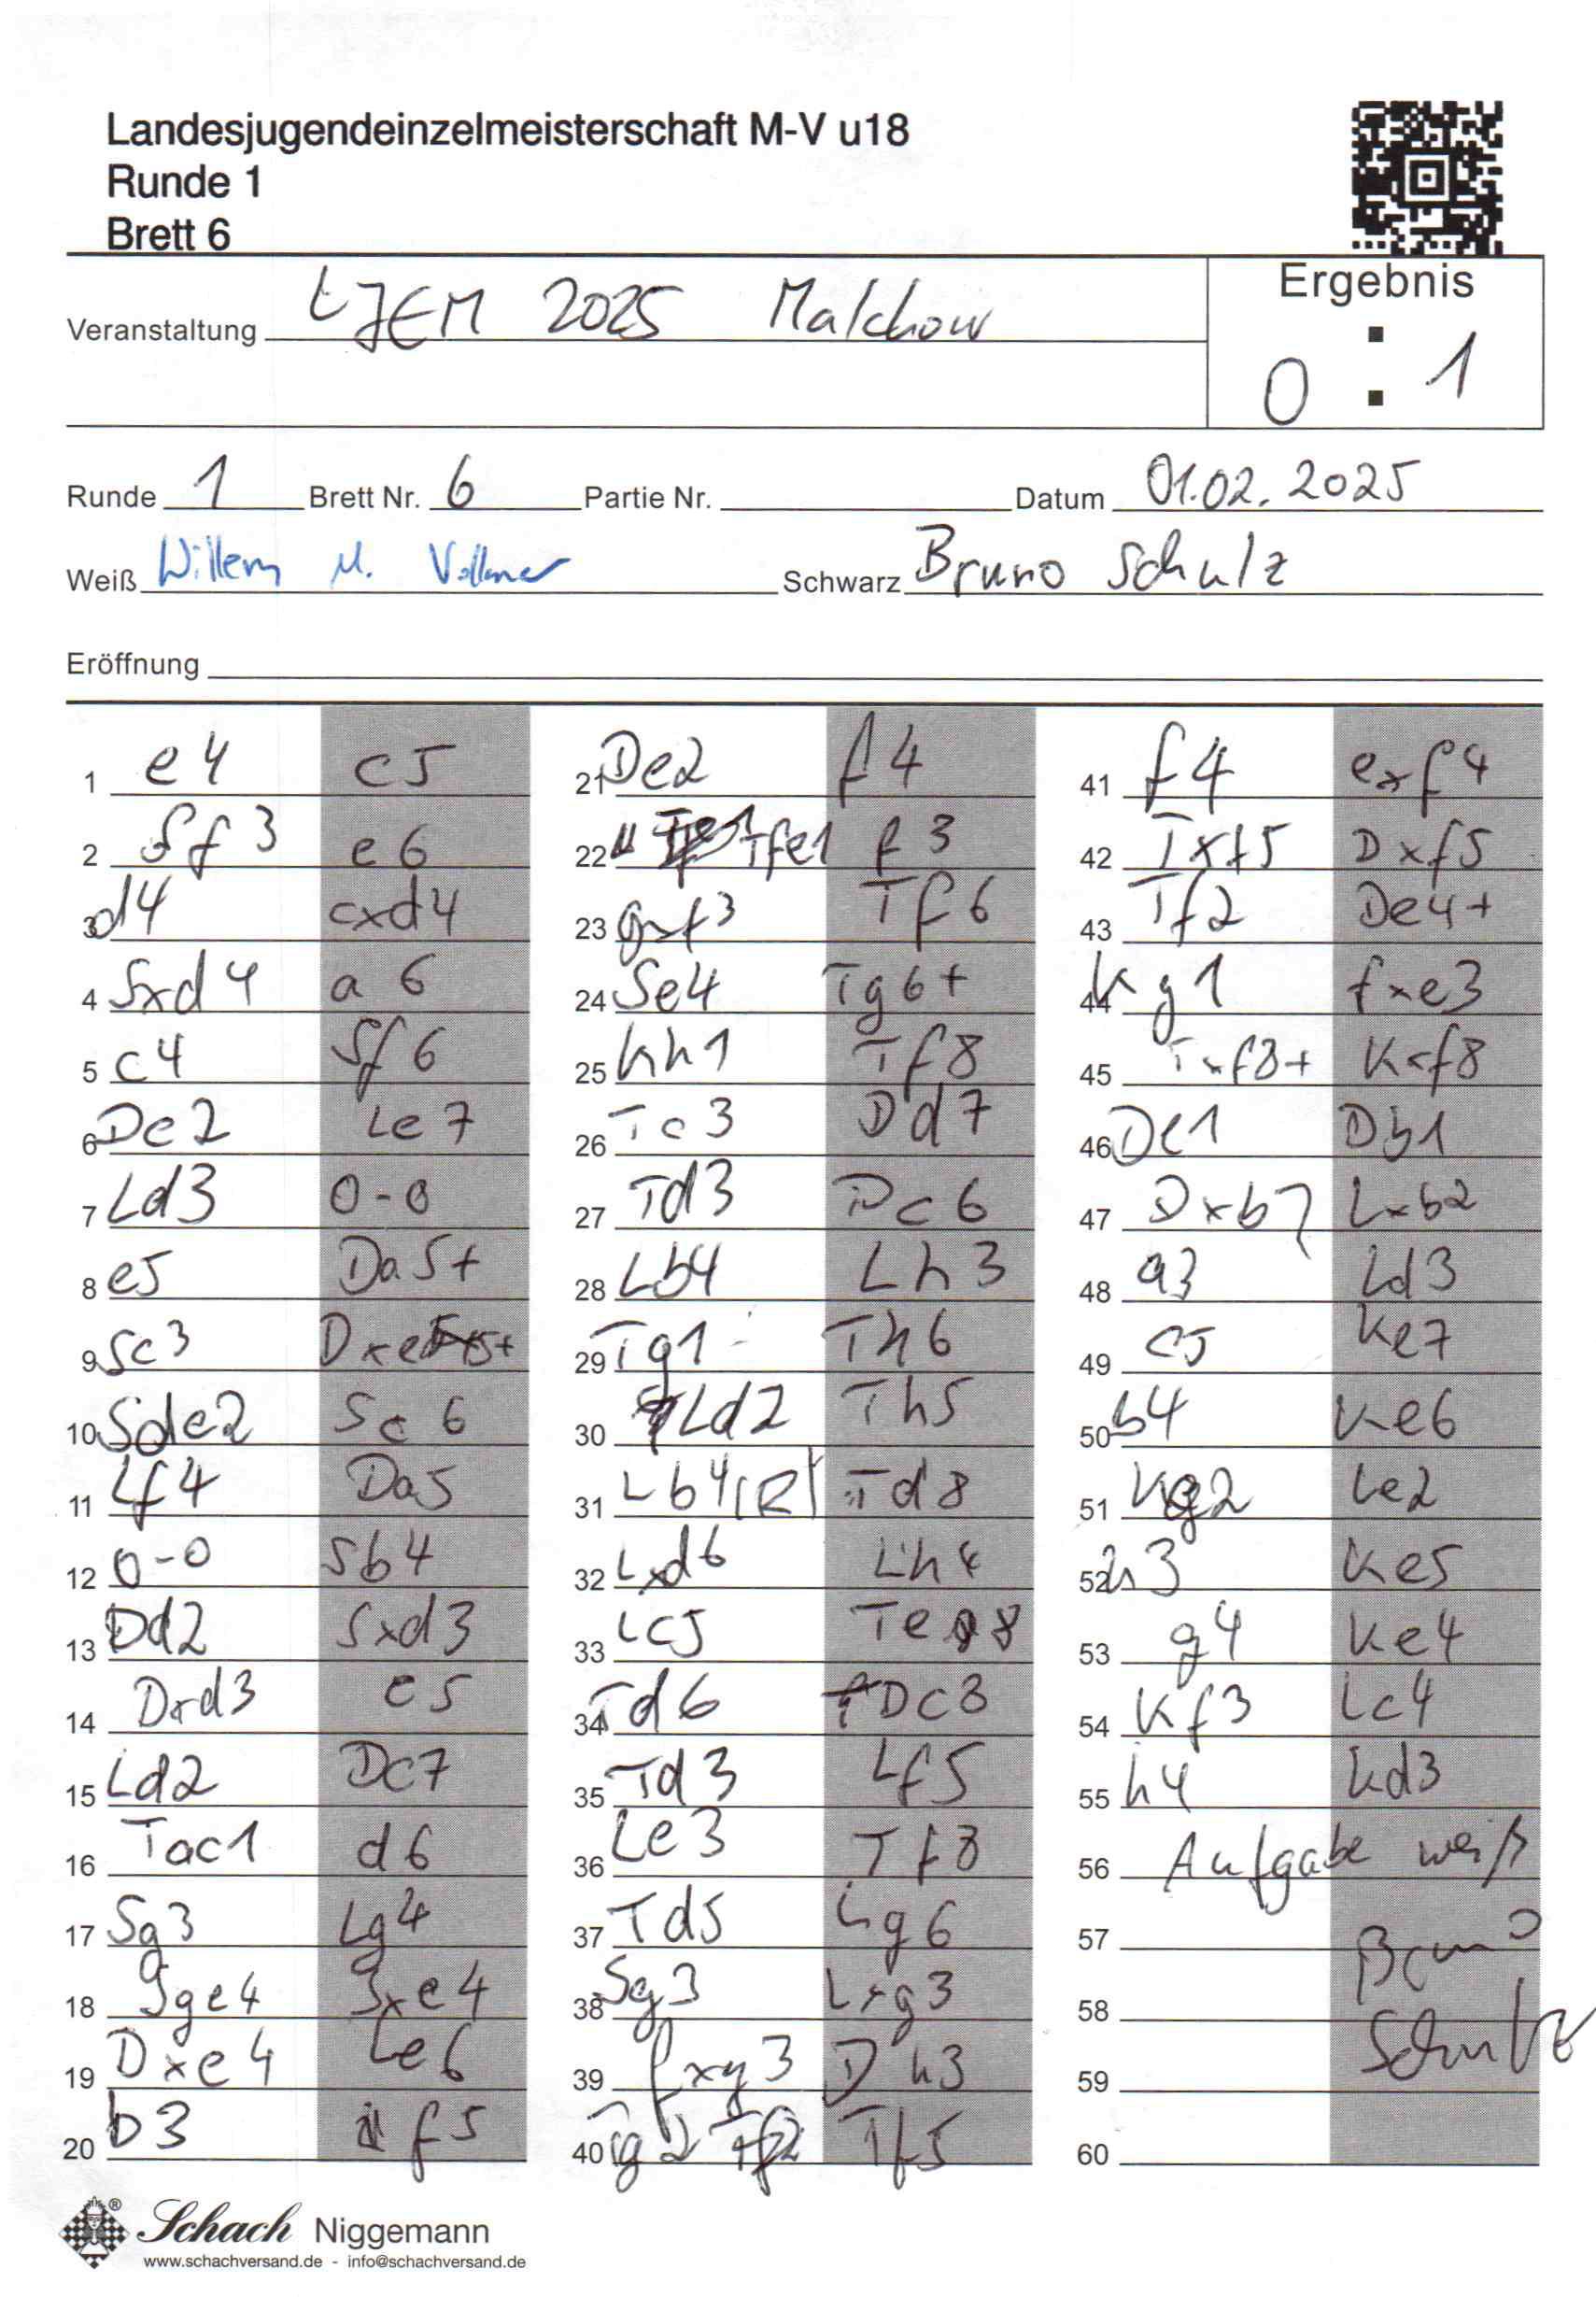 Landesjugendeinzelmeisterschaft M-V u18
Runde 1
Brett 6
Veranstaltung LJEM 2025 Malchow
Ergebnis
0 : 1
Runde 1 Brett Nr. 6 Partie Nr. Datum 01.02.2025
Weiß Willem M. Vollmer Schwarz Bruno Schulz
Eröffnung
1 e4 c5
2 Sf3 e6
3 d4 cxd4
4 Sxd4 a6
5 c4 Sf6
6 De2 Le7
7 Ld3 0-0
8 e5 Da5+
9 Sc3 Dxe5+
10 Sde2 Sc6
11 Lf4 Da5
12 0-0 Sb4
13 Dd2 Sxd3
14 Dxd3 e5
15 Ld2 Dc7
16 Tac1 d6
17 Sg3 Lg4
18 Sge4 Sxe4
19 Dxe4 Le6
20 b3 f5
21 De2 f4
22 Tfe1 f3
23 gxf3 Tf6
24 Se4 Tg6+
25 Kh1 Tf8
26 Tc3 Dd7
27 Td3 Dc6
28 Lb4 Lh3
29 Tg1 Th6
30 Ld2 Th5
31 Lb4(R) Td8
32 Lxd6 Lh4
33 Lc5 Te8
34 Td6 Dc8
35 Td3 Lf5
36 Le3 Tf8
37 Td5 Lg6
38 Sg3 Lxg3
39 fxg3 Dh3
40 Tg2 Tf5
41 f4 exf4
42 Txf5 Dxf5
43 Tf2 De4+
44 Kg1 fxe3
45 Txf8+ Kxf8
46 De1 Db1
47 Dxb7 Lxb2
48 a3 Ld3
49 c5 Ke7
50 b4 Ke6
51 Kg2 Le2
52 h3 Ke5
53 g4 Ke4
54 Kf3 Lc4
55 h4 Kd3
56 Aufgabe weiß
57 Bruno
58 Schulz
59
60
Schach Niggemann
www.schachversand.de - info@schachversand.de